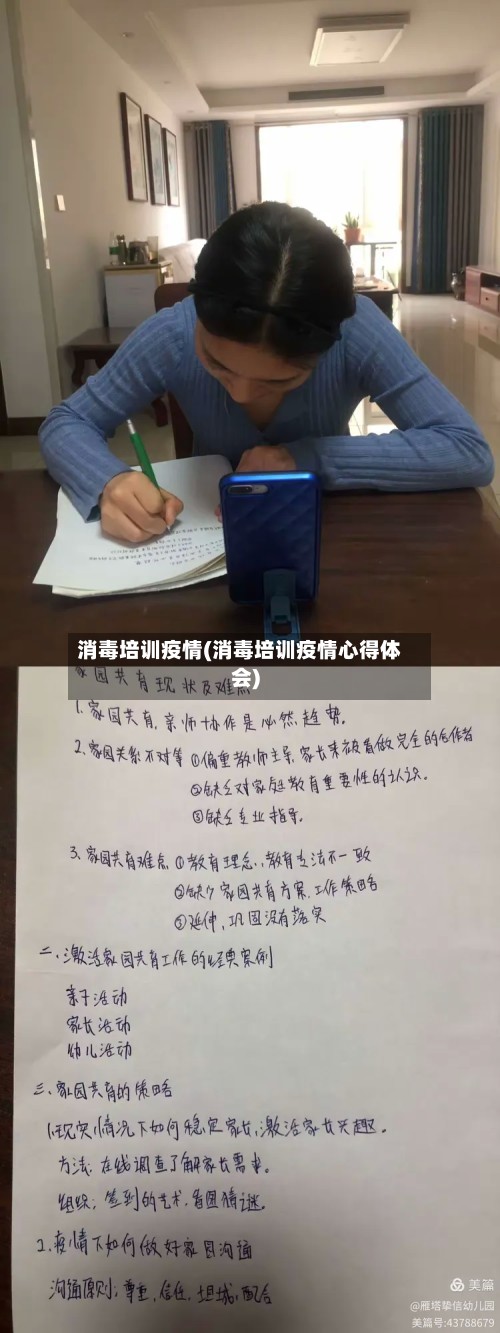 消毒培训疫情(消毒培训疫情心得体
会)
家园共育现状及难点
1. 家园共育，亲师协作是必然趋势。
2. 家园关系不对等 ①偏重教师主导，家长未被看做完全的合作者
②缺乏对家庭教育重要性的认识。
③缺乏专业指导。
3. 家园共育难点 ①教育理念，教育方法不一致
②缺少家园共育方案，工作策略
③延伸，巩固没有落实
二、激活家园共育工作的经典案例
亲子活动
家长活动
幼儿活动
三、家园共育的策略
1. 现实情况下如何稳定家长，激活家长兴趣。
方法：在线调查了解家长需求。
组织：签到的艺术，看图猜谜。
2. 疫情下如何做好家园沟通
沟通原则：尊重，信任，坦诚，配合
美篇
@雁塔挚信幼儿园
美篇号:43788679